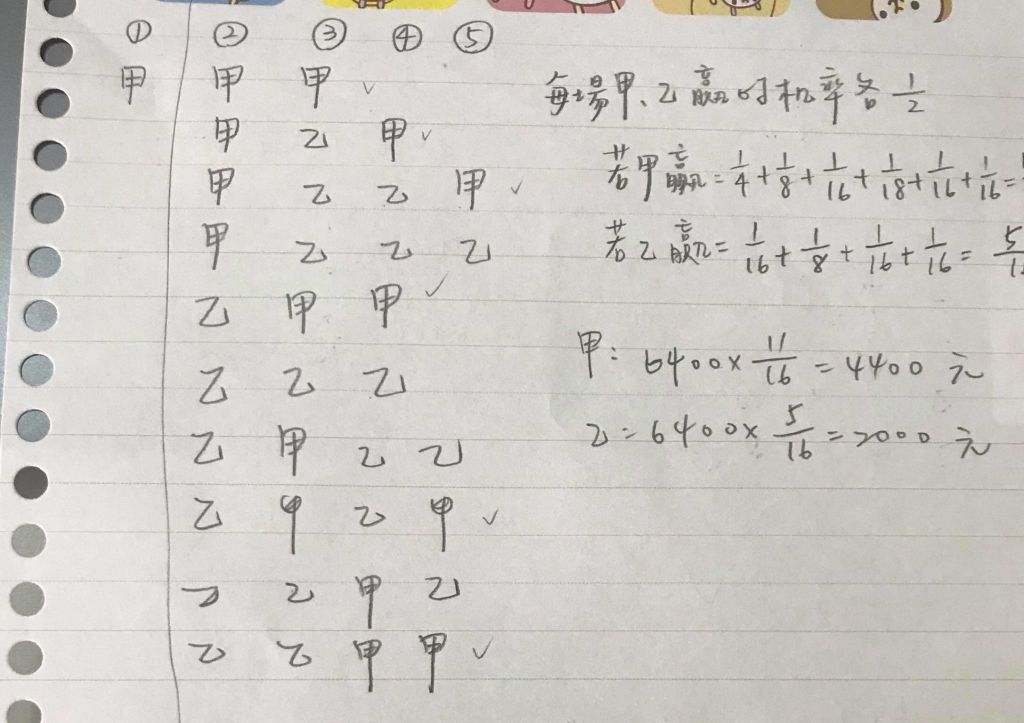 ① ② ③ ④ ⑤
甲 甲 甲 ✓
甲 乙 甲 ✓
甲 乙 乙 甲 ✓
甲 乙 乙 乙
乙 甲 甲 ✓
乙 乙 乙
乙 甲 乙 乙
乙 甲 乙 甲 ✓
乙 乙 甲 乙
乙 乙 甲 甲 ✓
每場甲、乙贏的机率各 1/2
若甲贏=1/4+1/8+1/16+1/18+1/16+1/16=
若乙贏=1/16+1/8+1/16+1/16=
甲:6400×11/16=4400 元
乙=6400×5/16=2000 元